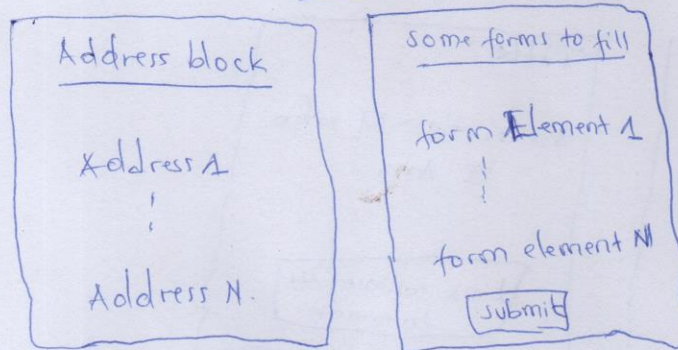 Address block
Address 1
Address N.
some forms to fill
form Element 1
form element N
submit